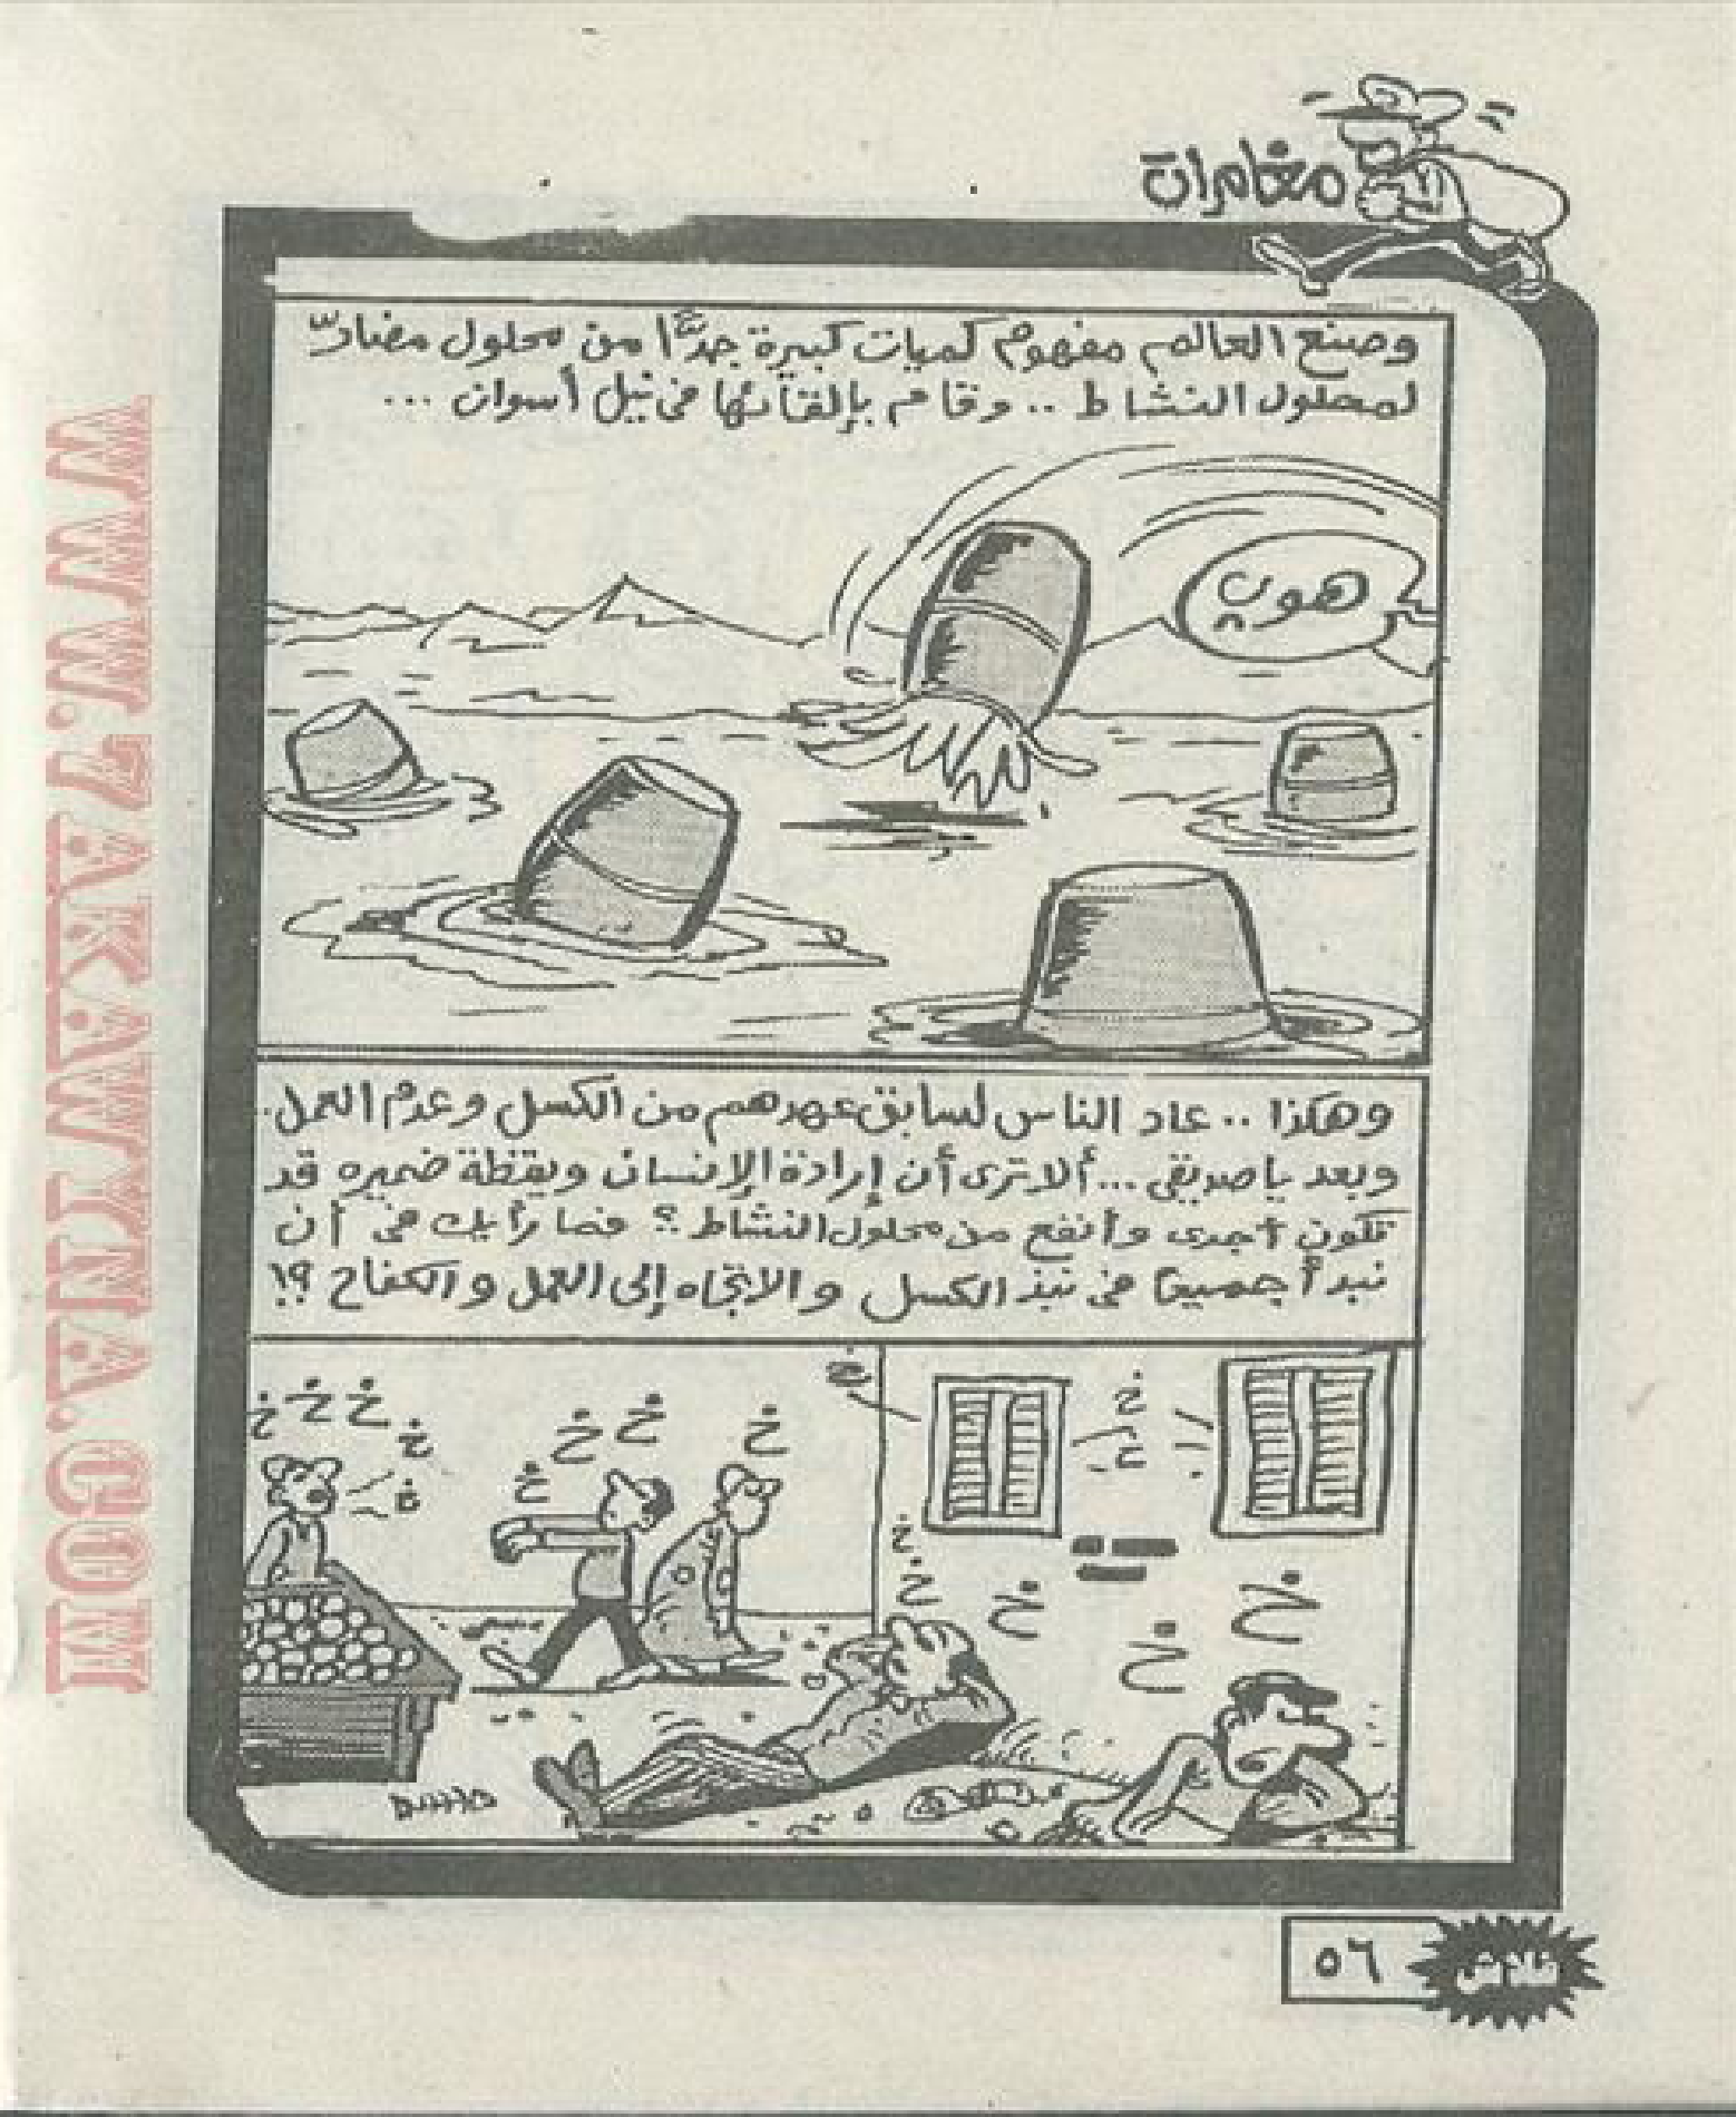 مغامرات
وصنع العالم مفهوم كميات كبيرة جدًّا من محلول مضادّ
لمحلول النشاط .. وقام بإلقائها فى نيل أسوان ...
هوب
وهكذا .. عاد الناس لسابق عهدهم من الكسل وعدم العمل..
وبعد يا صديقى ... ألا ترى أن إرادة الإنسان ويقظة ضميره قد
تكون أجدى وأنفع من محلول النشاط ؟ فما رأيك فى أن
نبدأ جميعًا فى نبذ الكسل والاتجاه إلى العمل والكفاح ؟!
خ خ خ خ
خ خ خ خ
خ خ
خ خ
خ خ خ
٥٦
فلاش
WWW.7AKAWITNA.COM